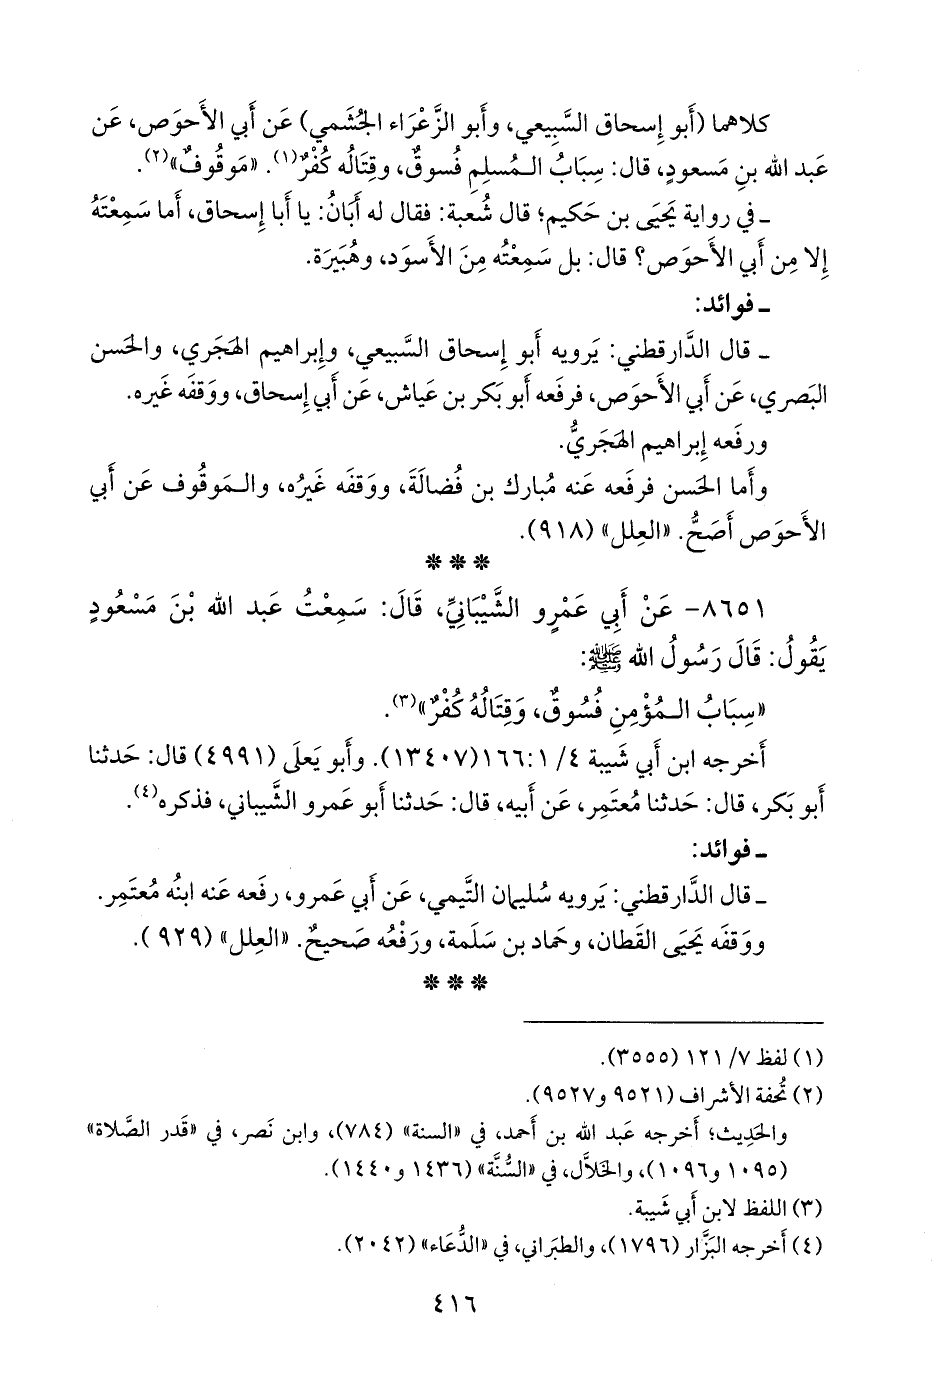 كلاهما (أَبو إِسحاق السَّبِيعي، وأَبو الزَّعْرَاء الجُشَمي) عَن أَبي الأَحوَص، عَن
عَبد الله بنِ مَسعودٍ، قال: سِبَابُ الـمُسلِمِ فُسوقٌ، وقِتَالُه كُفْرٌ(١). «مَوقُوفٌ»(٢).
ـ في رواية يَحيَى بن حَكيم؛ قال شُعبة: فقال له أَبَانُ: يا أَبا إِسحاق، أَما سَمِعْتَهُ
إِلا مِن أَبي الأَحوَص؟ قال: بل سَمِعْتُه مِنَ الأَسوَد، وهُبَيرَة.
ـ فوائد:
ـ قال الدَّارقطني: يَرويه أَبو إِسحاق السَّبيعي، وإِبراهيم الهَجَري، والحَسن
البَصري، عَن أَبي الأَحوَص، فرفَعه أَبو بَكر بن عَياش، عَن أَبي إِسحاق، ووَقفَه غَيره.
ورفَعه إِبراهيم الهَجَريُّ.
وأَما الحَسن فرفَعه عَنه مُبارك بن فُضالَةَ، ووَقفَه غَيرُه، والـمَوقُوف عَن أَبي
الأَحوَص أَصَحُّ. «العِلل» (٩١٨).
* * *
٨٦٥١- عَنْ أَبِي عَمْرٍو الشَّيْبَانِيِّ، قَالَ: سَمِعْتُ عَبد الله بْنَ مَسْعُودٍ
يَقُولُ: قَالَ رَسُولُ الله ﷺ:
«سِبَابُ الـمُؤْمِنِ فُسُوقٌ، وَقِتَالُهُ كُفْرٌ»(٣).
أَخرجه ابن أَبي شَيبة ٤/ ١:١٦٦(١٣٤٠٧). وأَبو يَعلَى (٤٩٩١) قال: حَدثنا
أَبو بَكر، قال: حَدثنا مُعتَمِر، عَن أَبيه، قال: حَدثنا أَبو عَمرو الشَّيباني، فذكره(٤).
ـ فوائد:
ـ قال الدَّارقطني: يَرويه سُليمان التَّيمي، عَن أَبي عَمرو، رفَعه عَنه ابنُه مُعتَمِر.
ووَقفَه يَحيَى القَطان، وحَماد بن سَلَمة، ورَفْعُه صَحيحٌ. «العِلل» (٩٢٩).
* * *
(١) لفظ ٧/ ١٢١ (٣٥٥٥).
(٢) تُحفة الأشراف (٩٥٢١ و٩٥٢٧).
والحَدِيث؛ أَخرجه عَبد الله بن أَحمد، في «السنة» (٧٨٤)، وابن نَصر، في «قَدر الصَّلاة»
(١٠٩٥ و١٠٩٦)، والخَلاَّل، في «السُّنَّة» (١٤٣٦ و١٤٤٠).
(٣) اللفظ لابن أَبي شَيبة.
(٤) أَخرجه البَزَّار (١٧٩٦)، والطبَراني، في «الدُّعَاء» (٢٠٤٢).
٤١٦